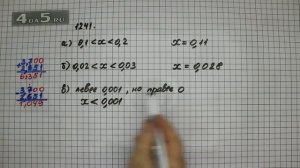 4DA5.RU
1241.
а) 0,1 < x < 0,2 x = 0,11
б) 0,02 < x < 0,03 x = 0,028
в) левее 0,001, но правее 0
x < 0,001
3,700
2,651
6,351
3,700
2,651
1,049